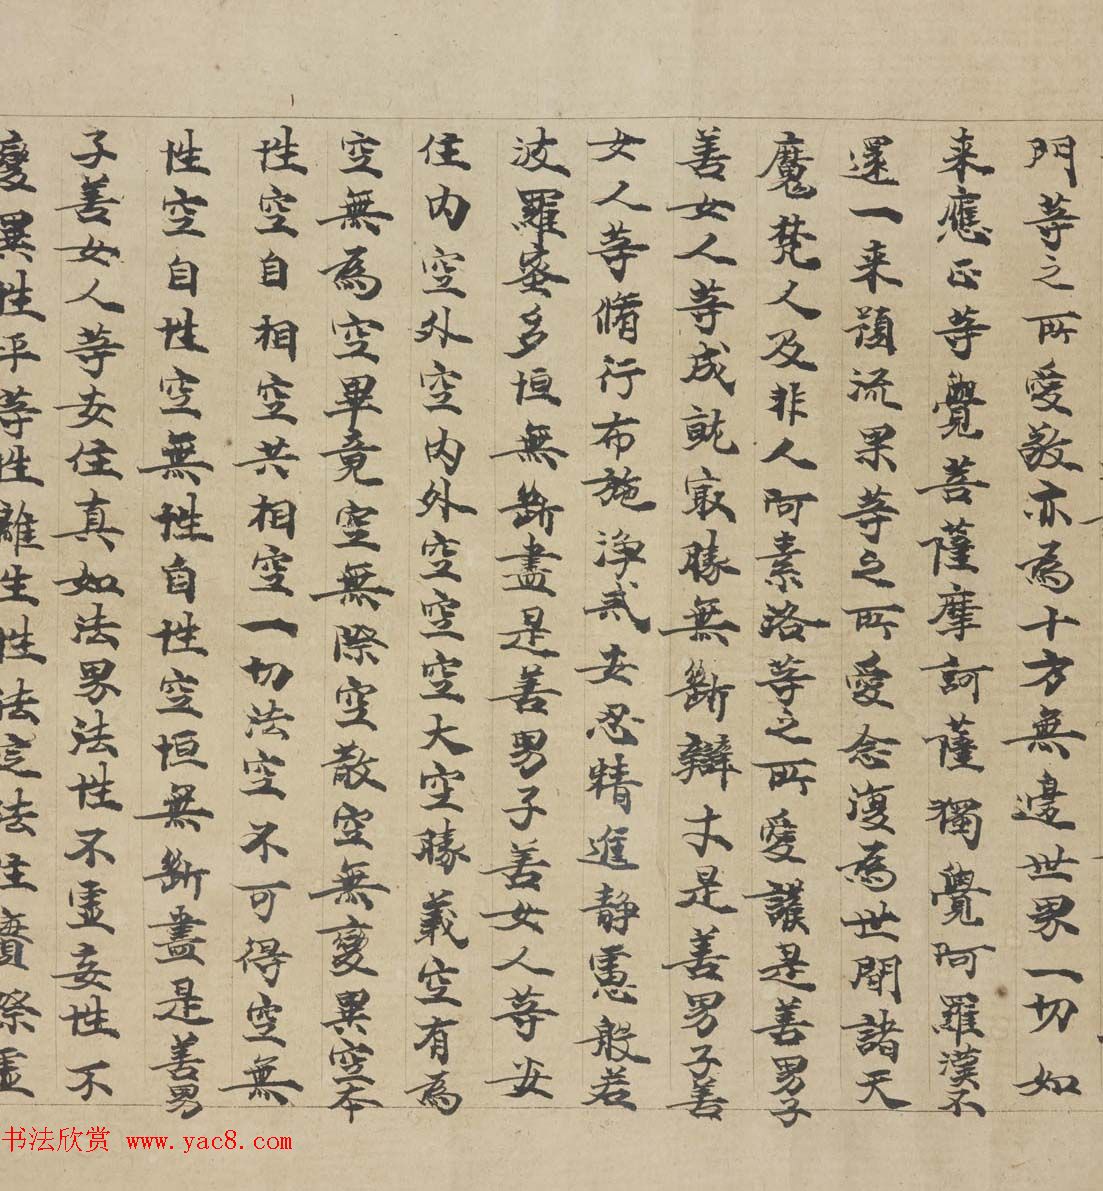 門等之所愛敬亦為十方無邊世界一切如
来應正等覺菩薩摩訶薩獨覺阿羅漢不
還一来預流果等之所愛念復為世間諸天
魔梵人及非人阿素洛等之所愛護是善男子
善女人等成就冣勝無斷辯才是善男子善
女人等脩行布施淨戒安忍精進静慮般若
波羅蜜多恒無斷盡是善男子善女人等安
住内空外空内外空空空大空勝義空有為
空無為空畢竟空無際空散空無變異空本
性空自相空共相空一切法空不可得空無
性空自性空無性自性空恒無斷盡是善男
子善女人等安住真如法界法性不虚妄性不
變異性平等性離生性法定法住實際虚
书法欣赏 www.yac8.com